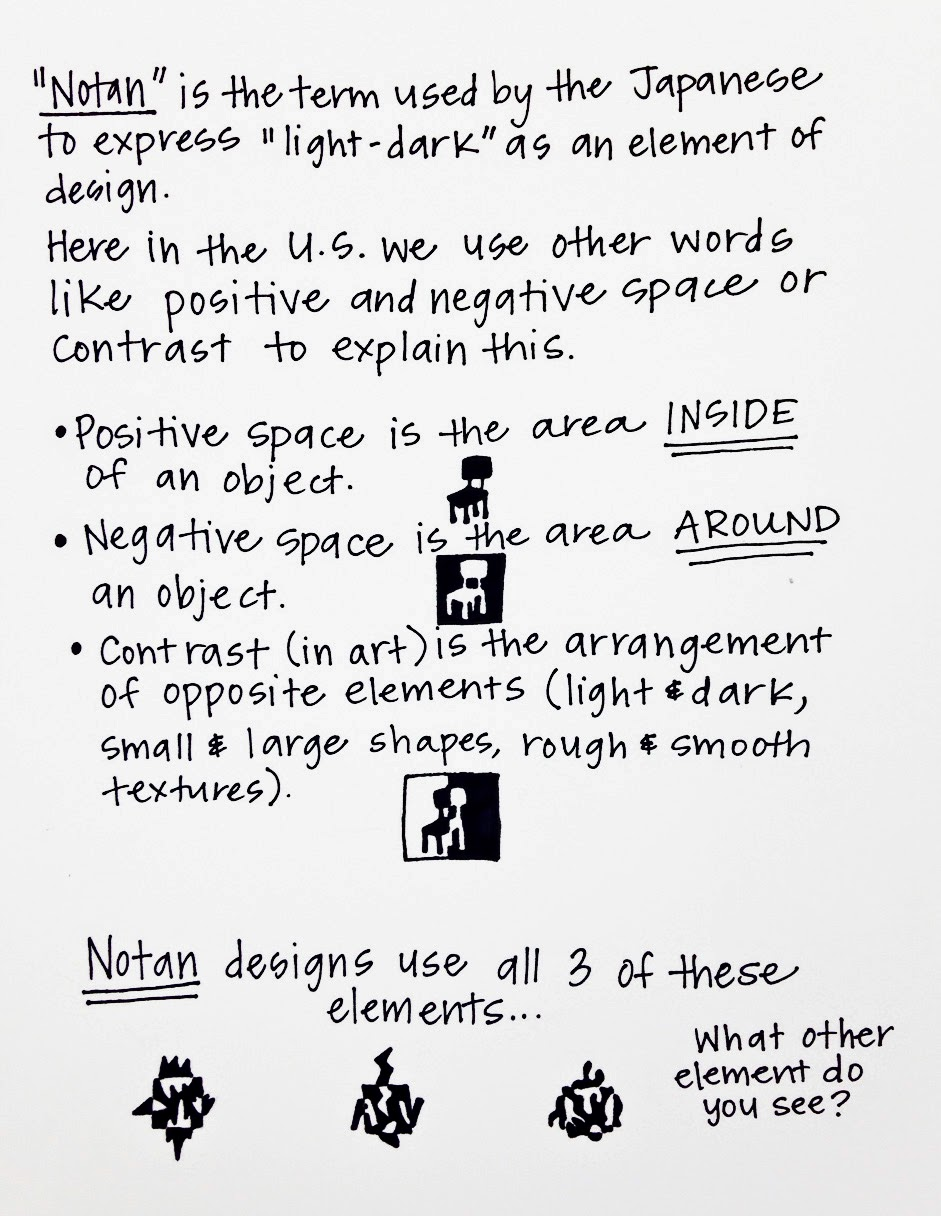 "Notan" is the term used by the Japanese
to express "light-dark" as an element of
design.
Here in the U.S. we use other words
like positive and negative space or
contrast to explain this.
• Positive space is the area INSIDE
of an object.
• Negative space is the area AROUND
an object.
• Contrast (in art) is the arrangement
of opposite elements (light & dark,
small & large shapes, rough & smooth
textures).
Notan designs use all 3 of these
elements...
What other
element do
you see?